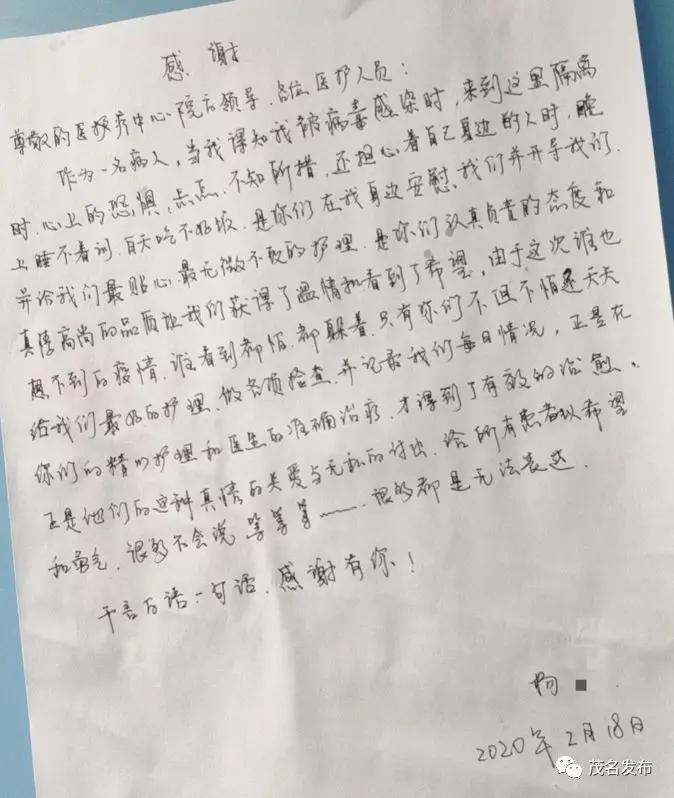 感谢
尊敬的医疗中心院方领导、各位医护人员：
作为一名病人，当我得知我被病毒感染时，来到这里隔离
时，心上的恐惧，焦虑，不知所措，还担心着自己身边的人时，晚
上睡不着训，白天吃不好饭，是你们在我身边安慰我们并开导我们，
并给我们最贴心、最无微不致的护理，是你们认真负责的态度和
真情高尚的品质让我们获得了温情和看到了希望，由于这次谁也
想不到的疫情，谁看到都怕，都躲着，只有你们不但不怕还天天
给我们最好的护理，做各项检查，并记录我们每日情况，正是在
你们的精心护理和医生的准确治疗，才得到了有效的治愈。
正是他们的这种真情的关爱与无私的付出，给所有患者以希望
和勇气，很多不会说等等等——，很多都是无法表达．
千言万语一句话，感谢有你！
杨
2020年2月18日
茂名发布